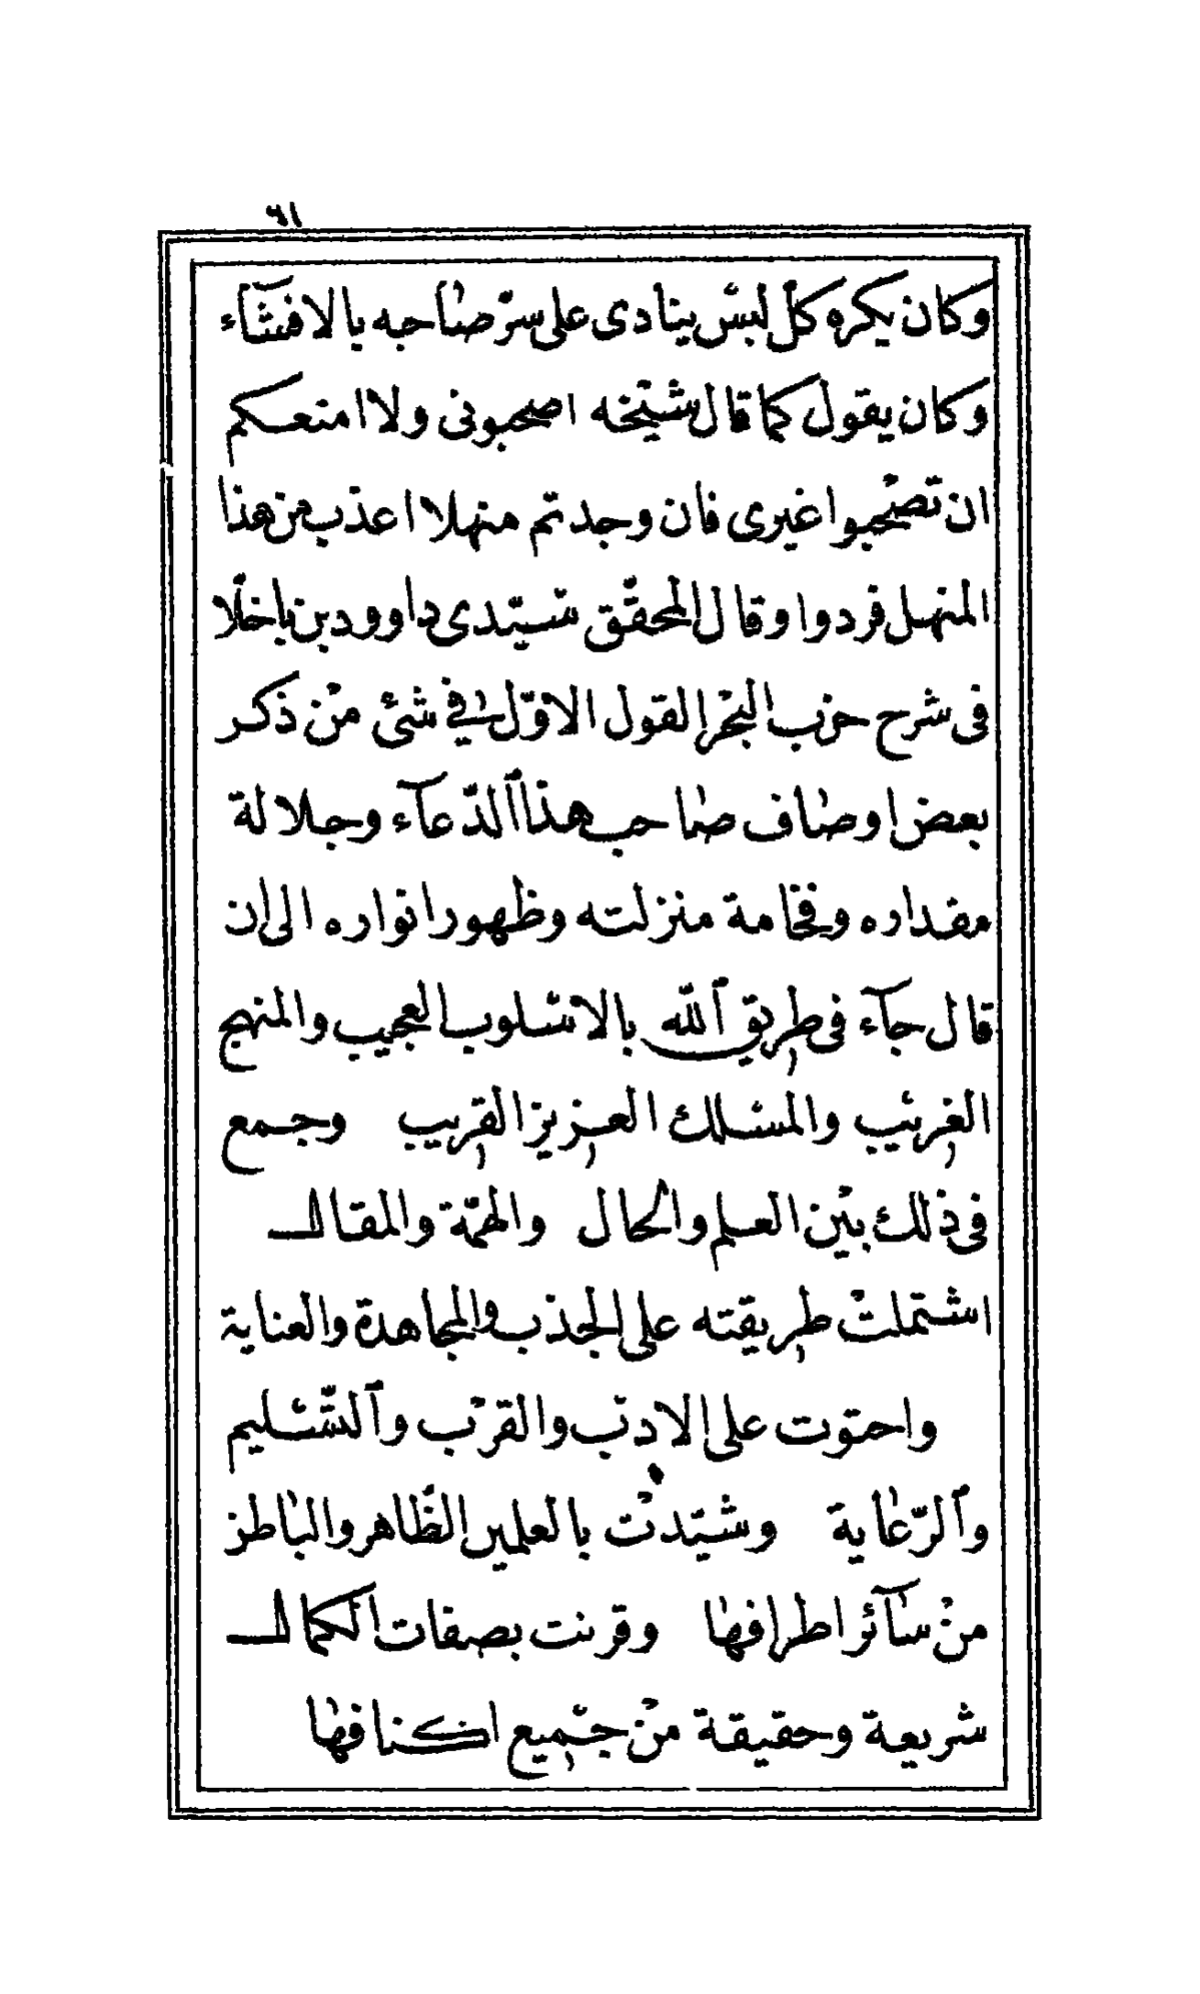 ٦١
وكان يكره كلّ لبس ينادى على سرّ صاحبه بالافشآء
وكان يقول كما قال شيخه اصحبونى ولا امنعكم
ان تصحبوا غيرى فان وجدتم منهلا اعذب من هذا
المنهل فردوا وقال المحقّق سيّدى داوود بن باخلّا
فى شرح حزب البحر القول الاوّل فى شئ من ذكر
بعض اوصاف صاحب هذا الدّعآء وجلالة
مقداره وفخامة منزلته وظهور انواره الى ان
قال جآء فى طريق الله بالاسلوب العجيب والمنهج
الغريب والمسلك العزيز القريب وجمع
فى ذلك بين العلم والحال والهمّة والمقال
اشتملت طريقته على الجذب والمجاهدة والعناية
واحتوت على الادب والقرب والتّسليم
والرّعاية وشيّدت بالعلمين الظّاهر والباطن
من سآئر اطرافها وقرنت بصفات الكمال
شريعة وحقيقة من جميع اكنافها